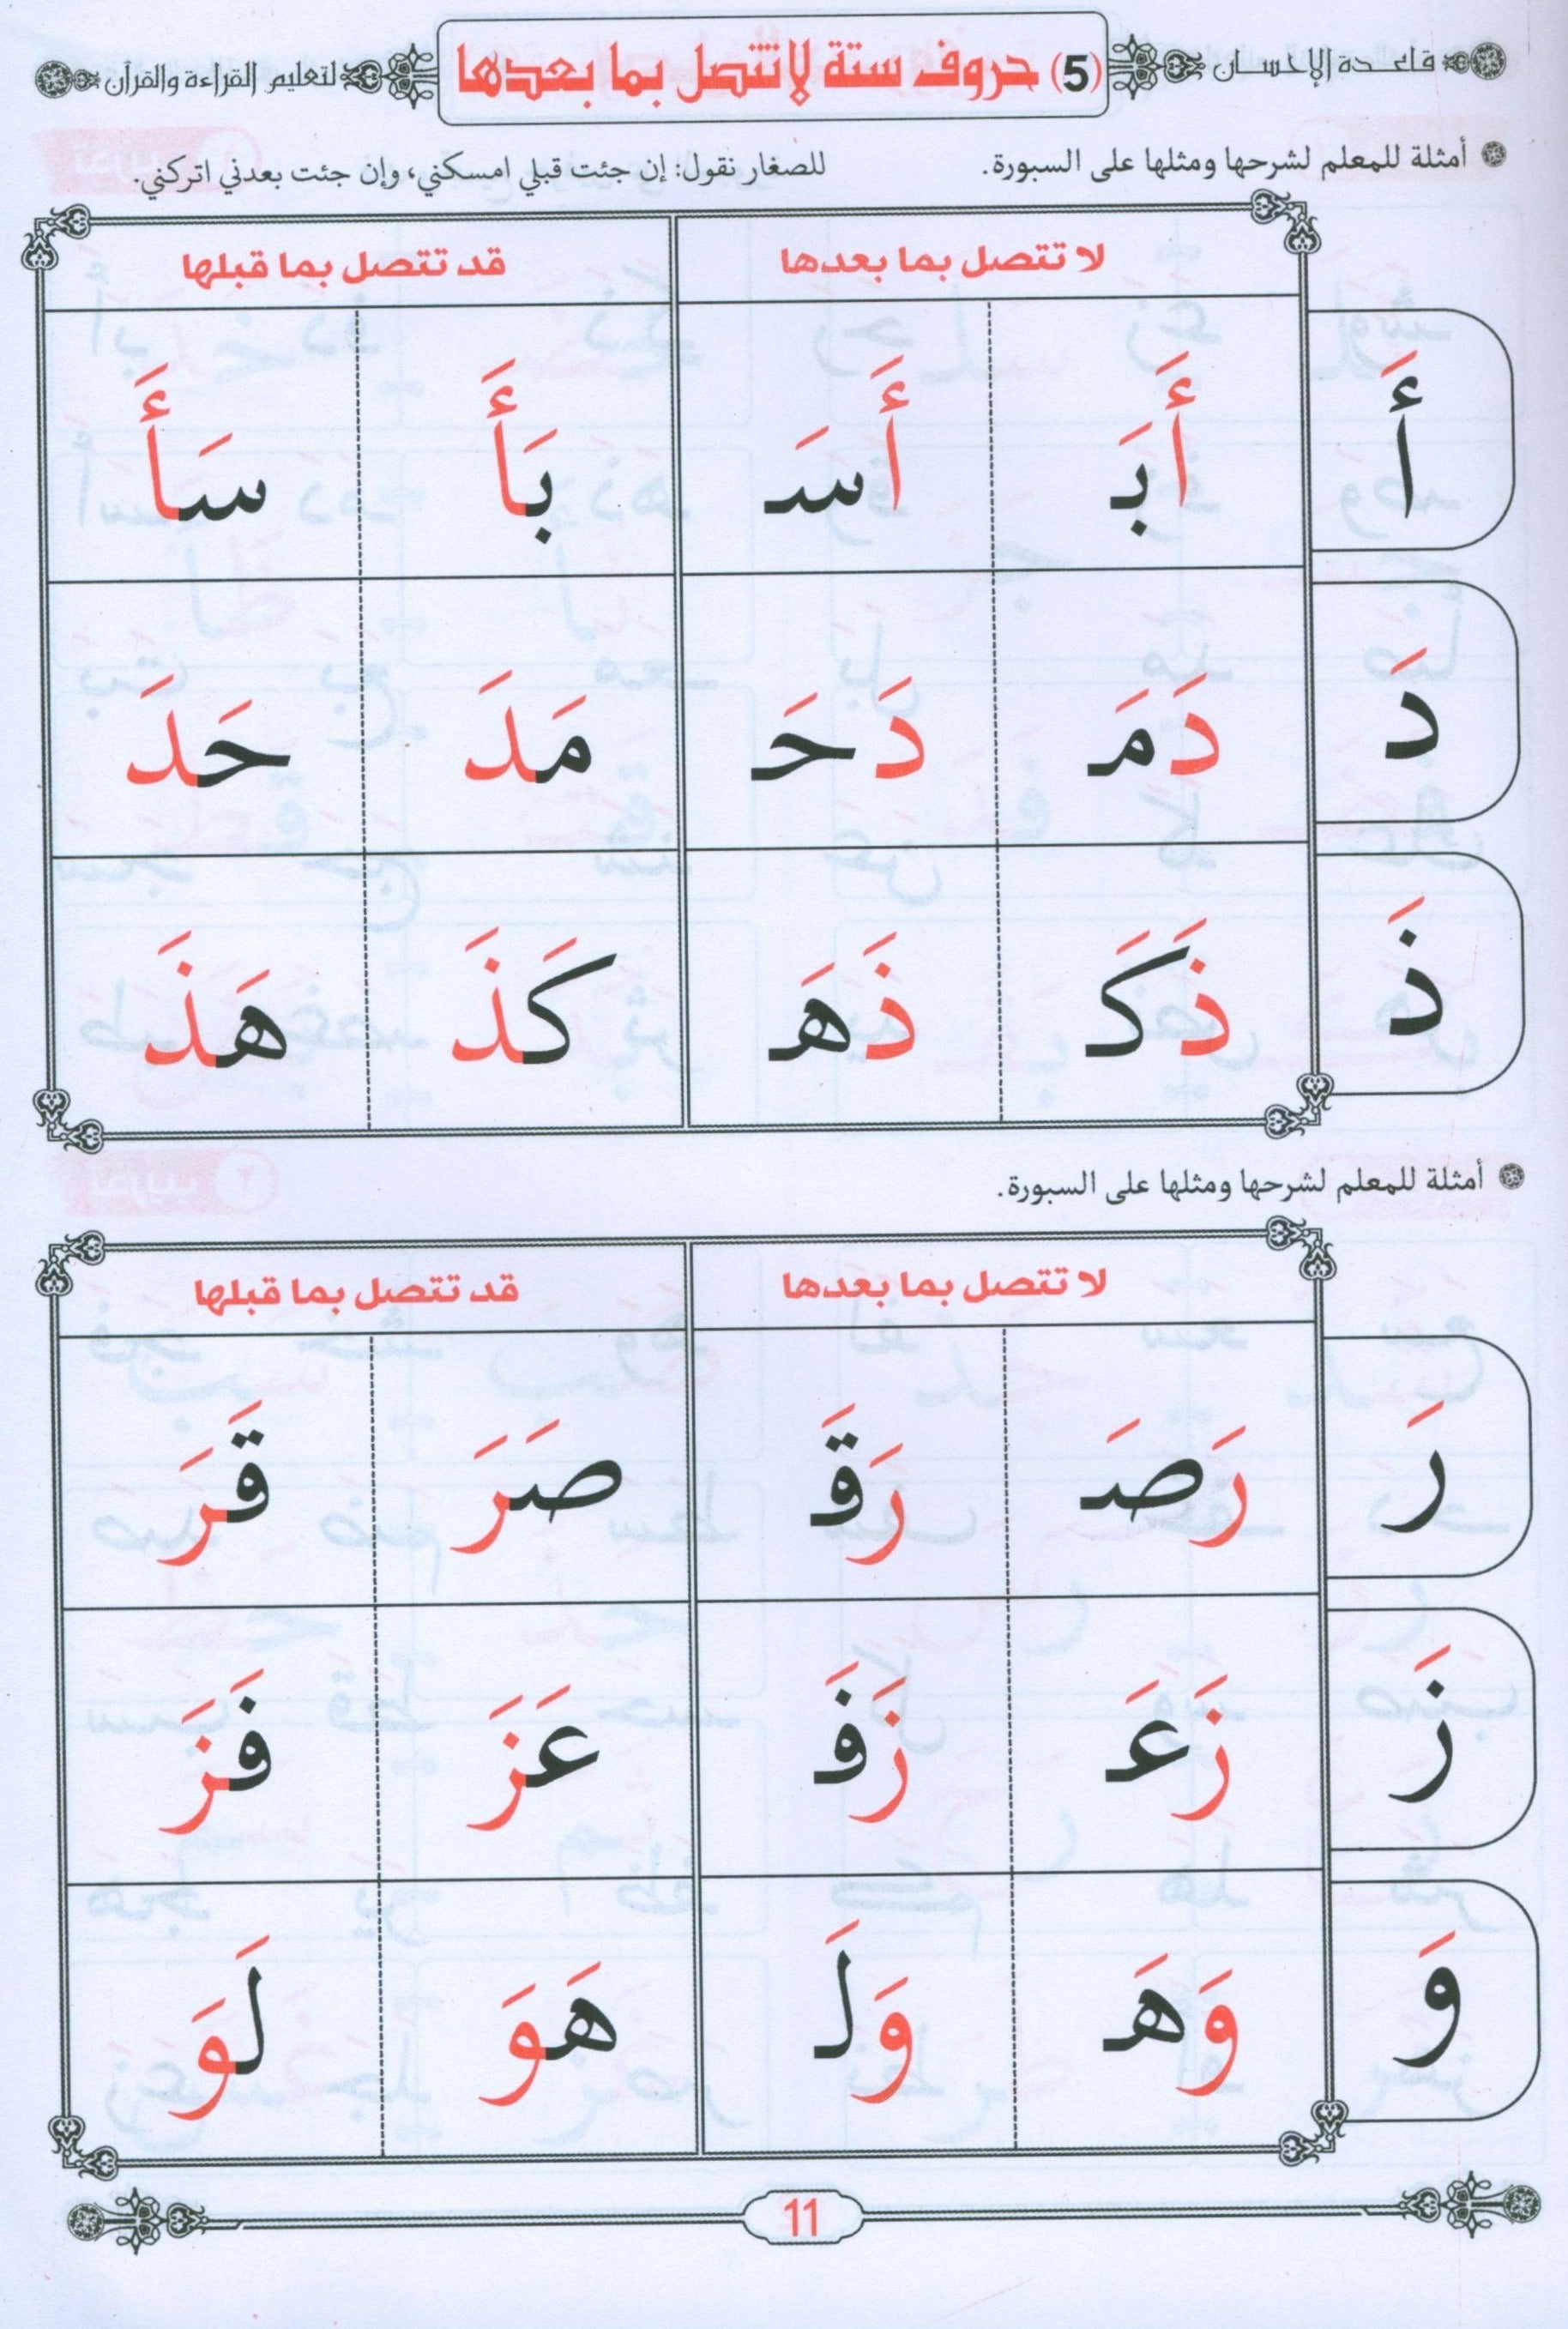 قاعدة الإحسان (5) حروف ستة لا تتصل بما بعدها لتعليم القراءة والقرآن
أمثلة للمعلم لشرحها ومثلها على السبورة. للصغار نقول: إن جئت قبلي امسكني، وإن جئت بعدني اتركني.
لا تتصل بما بعدها قد تتصل بما قبلها
أَ أَبَـ أَسَـ بَأَ سَأَ
دَ دَمَـ دَحَـ مَدَ حَدَ
ذَ ذَكَـ ذَهَـ كَذَ هَذَ
أمثلة للمعلم لشرحها ومثلها على السبورة.
لا تتصل بما بعدها قد تتصل بما قبلها
رَ رَصَـ رَقَـ صَرَ قَرَ
زَ زَعَـ زَفَـ عَزَ فَزَ
وَ وَهَـ وَلَـ هَوَ لَوَ
11